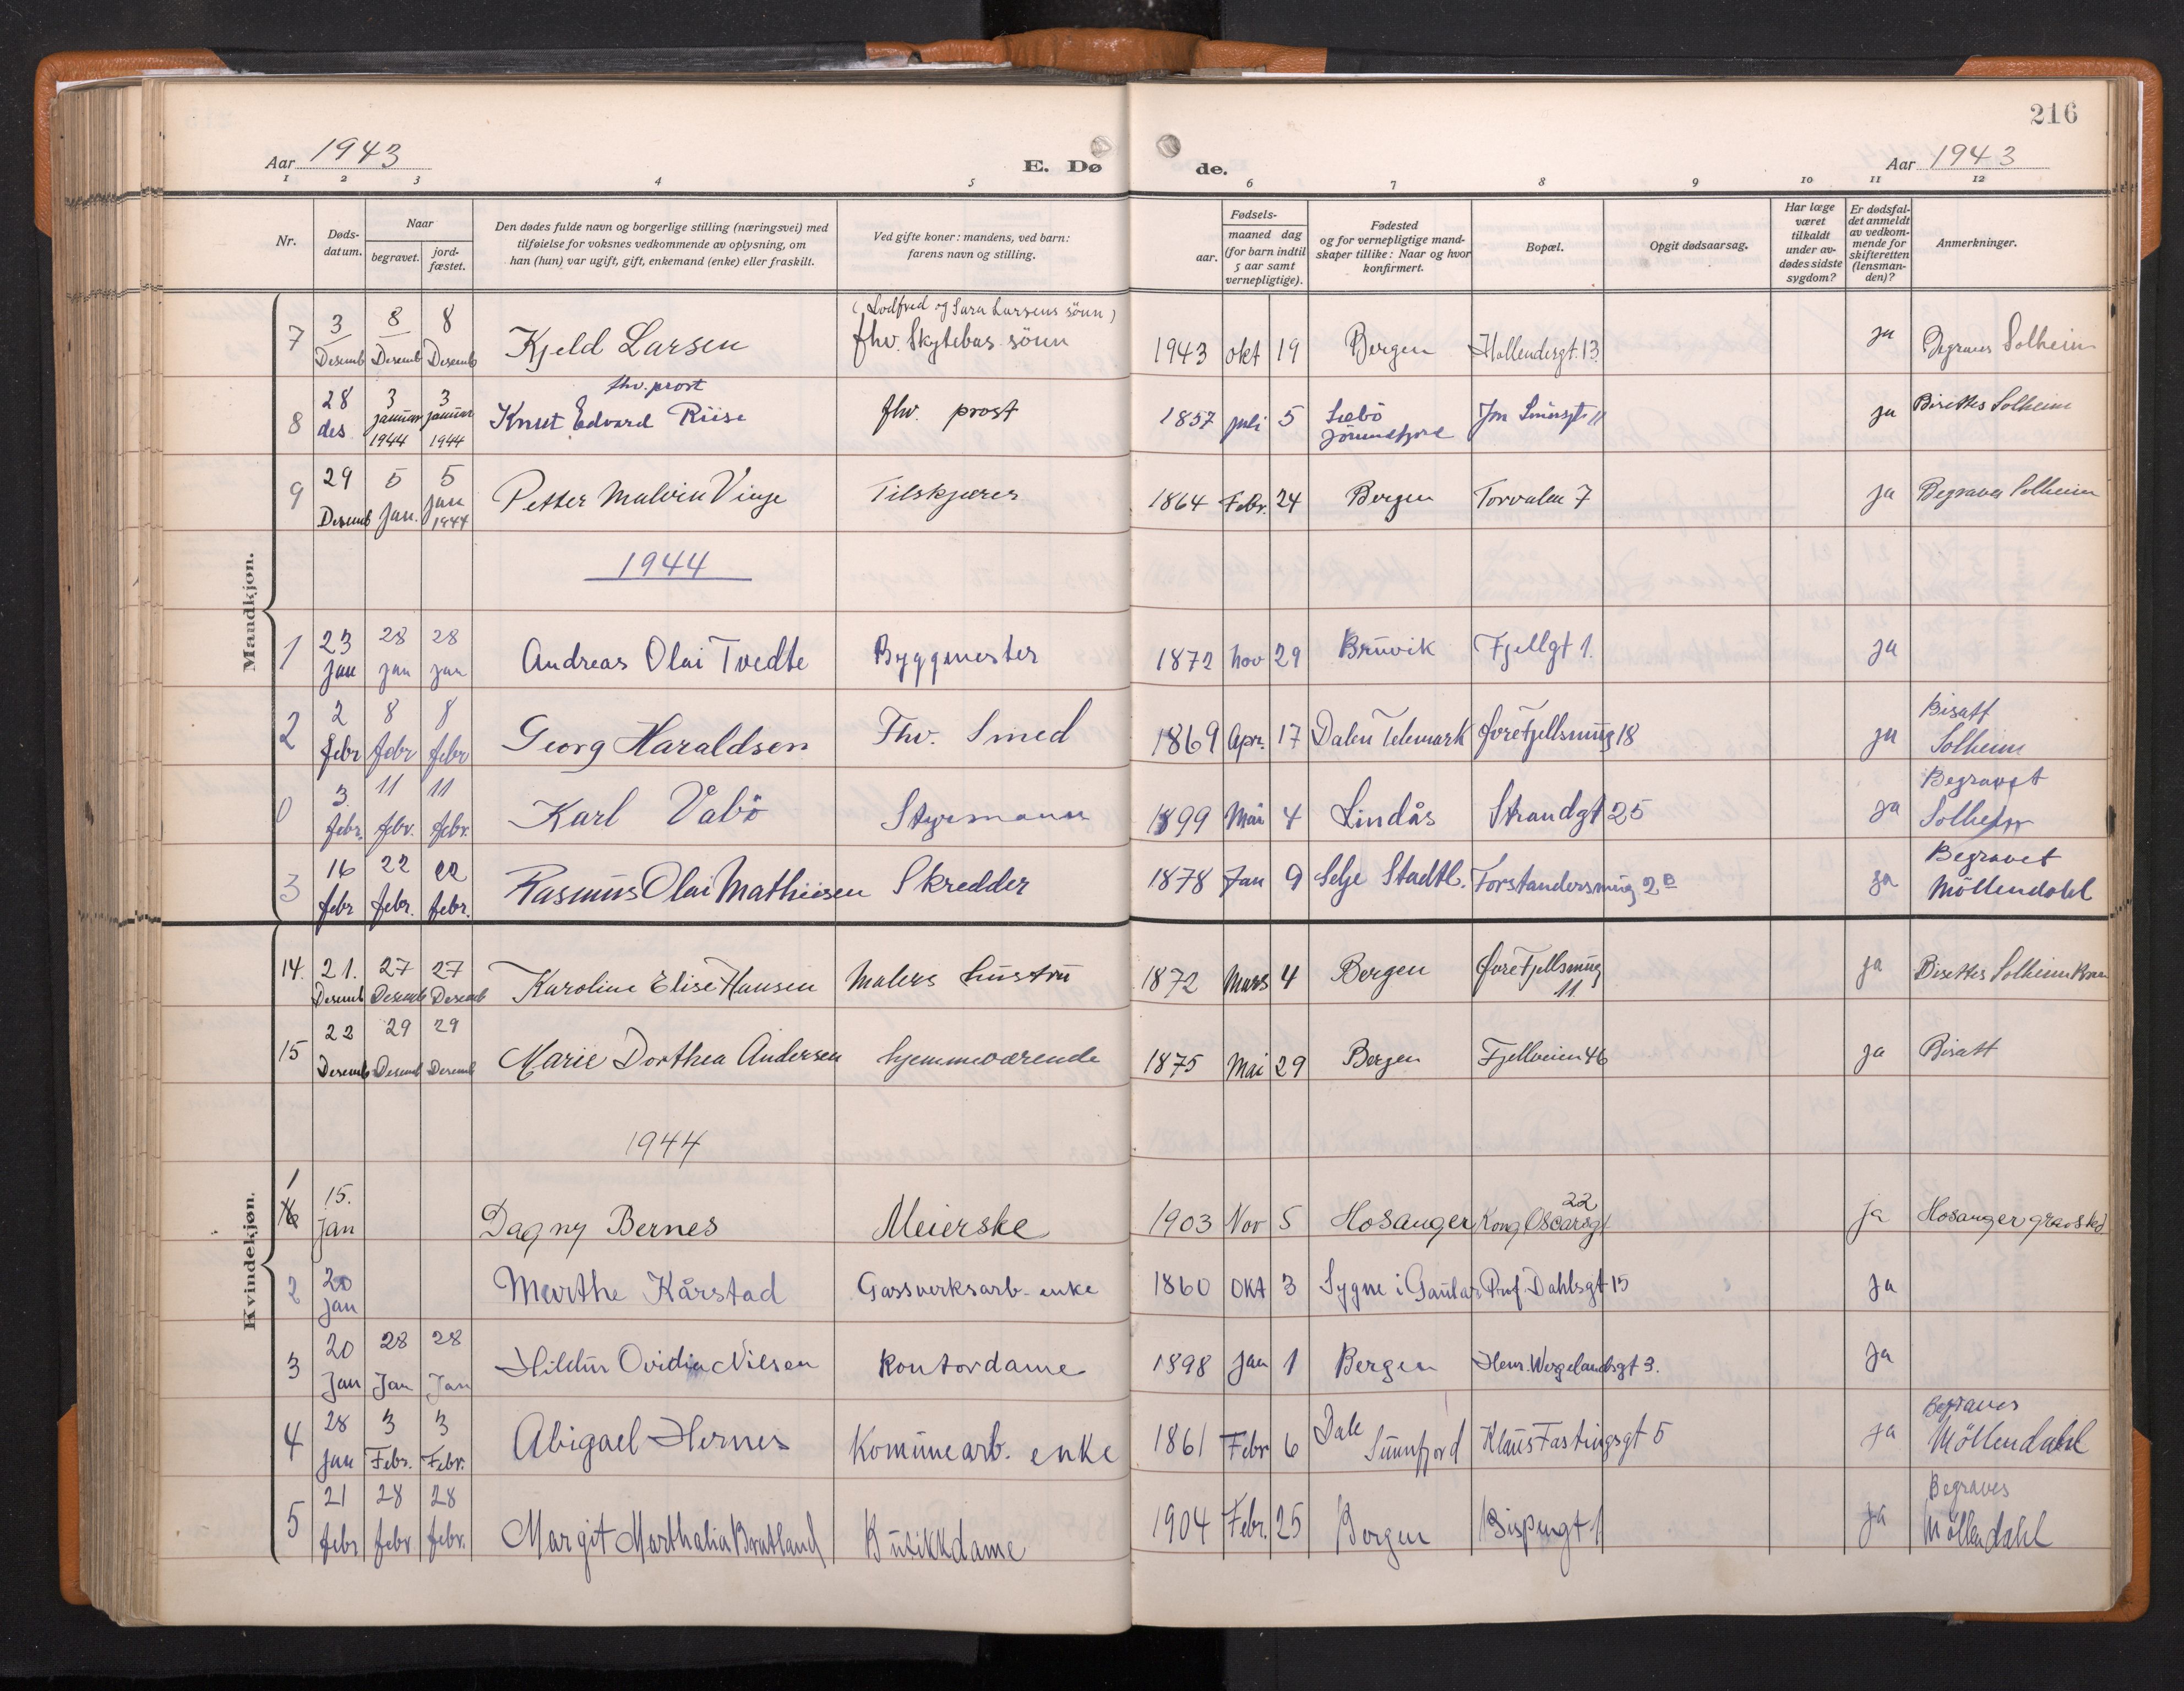 216
Aar 1943
E. Dø
de.
Aar 1943
1 2 3 4 5 6 7 8 9 10 11 12
Nr.
Døds-
datum.
Naar
begravet.
jord-
fæstet.
Den dødes fulde navn og borgerlige stilling (næringsvei) med
tilføielse for voksnes vedkommende av oplysning, om
han (hun) var ugift, gift, enkemand (enke) eller fraskilt.
Ved gifte koner: mandens, ved barn:
farens navn og stilling.
Fødsels-
aar.
maaned dag
(for barn indtil
5 aar samt
vernepligtige).
Fødested
og for vernepligtige mand-
skaper tillike: Naar og hvor
konfirmert.
Bopæl.
Opgit dødsaarsag.
Har læge
været
tilkaldt
under av-
dødes sidste
sygdom?
Er dødsfal-
det anmeldt
av vedkom-
mende for
skifteretten
(lensman-
den)?
Anmerkninger.
Mandkjøn.
(Lodfred og Sara Larsens sönn)
7 3 Desemb 8 Desemb 8 Desemb Kjeld Larsen fhv. Skytebas sönn 1943 okt 19 Bergen Hollendergt. 13. ja Begraves Solheim
fhv. prost
8 28 des 3 januar 1944 3 januar 1944 Knut Edvard Riise fhv. prost 1857 juli 5 Sæbö Jörundfjord Jon Smörsgt 11 ja Bisettes Solheim
9 29 Desemb 5 jan. 5 jan 1944 Petter Malvin Vinje Tilskjærer 1864 Febr. 24 Bergen Torvalm 7 ja Begraves Solheim
1944
1 23 jan 28 jan 28 jan Andreas Olai Tvedte Byggmester 1872 nov 29 Bruvik Fjellgt 1. ja
2 2 febr 8 febr 8 febr Georg Haraldsen Fhv. Smed 1869 Apr. 17 Dalen Telemark Øvre Fjellsmug 18 ja Bisatt Solheim
0 3. febr. 11 febr. 11 febr. Karl Vabö Styrmann 1899 Mai 4 Lindås Strandgt 25 ja Begravet Solheim
3 16 febr 22 febr. 22 febr. Rasmus Olai Mathiesen Skredder 1878 Jan 9 Selje Stadtl. Forstandersmug 2B ja Begravet Möllendahl
Kvindekjøn.
14. 21. Desemb 27 Desemb 27 Desemb Karoline Elise Hansen Malers hustru 1872 Mars 4 Bergen Øvre Fjellsmug 11 ja Bisettes Solheim
15 22 Desemb 29 Desemb 29 Desemb Marie Dorthea Andersen hjemmeværende 1875 Mai 29 Bergen Fjellveien 46 ja Bisatt
1944
1 15. jan Dagny Bernes Meierske 1903 Nov 5 Hosanger Kong Oscarsgt 22 ja Hosanger gravsted
2 20 jan Marthe Kårstad Gassverksarb. enke 1860 OKt 3 Sygne i Gaular Prof. Dahlsgt 15 ja
3 20 Jan 28 Jan 28 Jan Hildur Ovidia Nilsen Kontordame 1898 jan 1 Bergen Henr. Wergelandsgt 3. ja
4 28 jan 3 Febr. 3 Febr. Abigael Hernes Komunearb. enke 1861 Febr 6 Dale Sunnfjord Klaus Fastingsgt 5 ja Begraves Möllendahl
5 21 febr 28 febr 28 febr. Margit Marthalia Bratland Butikkdame 1904 Febr. 25 Bergen Bispengt 1 ja Begraves Möllendahl